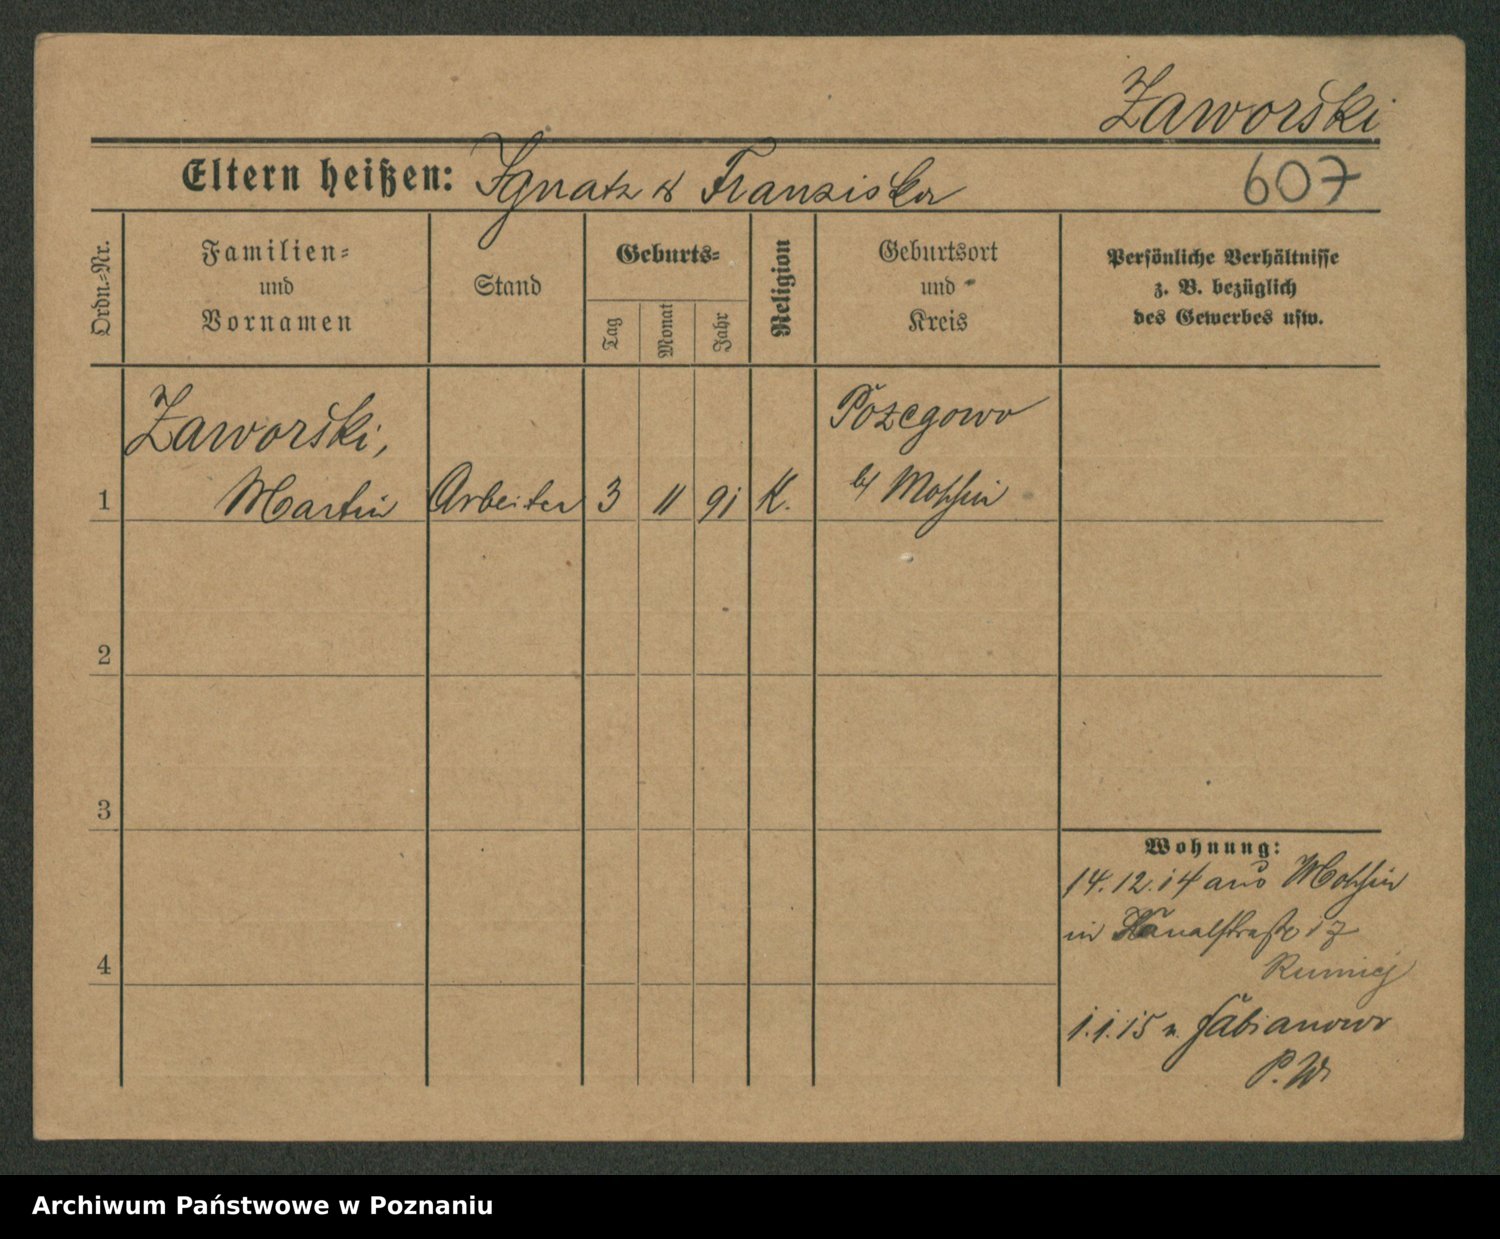 Zaworski
Eltern heißen: Ignatz & Franziska
607
Ordn.-Nr.
Familien-
und
Vornamen
Stand
Geburts-
Tag
Monat
Jahr
Religion
Geburtsort
und
Kreis
Persönliche Verhältnisse
z. B. bezüglich
des Gewerbes usw.
Zaworski,
Martin
1
Arbeiter
3
11
91
K.
Pożegowo
b/ Moschin
2
3
4
Wohnung:
14.12.14 aus Moschin
in Kanalstraße 17
1.1.15 n. Fabianowo
P. W.
Archiwum Państwowe w Poznaniu